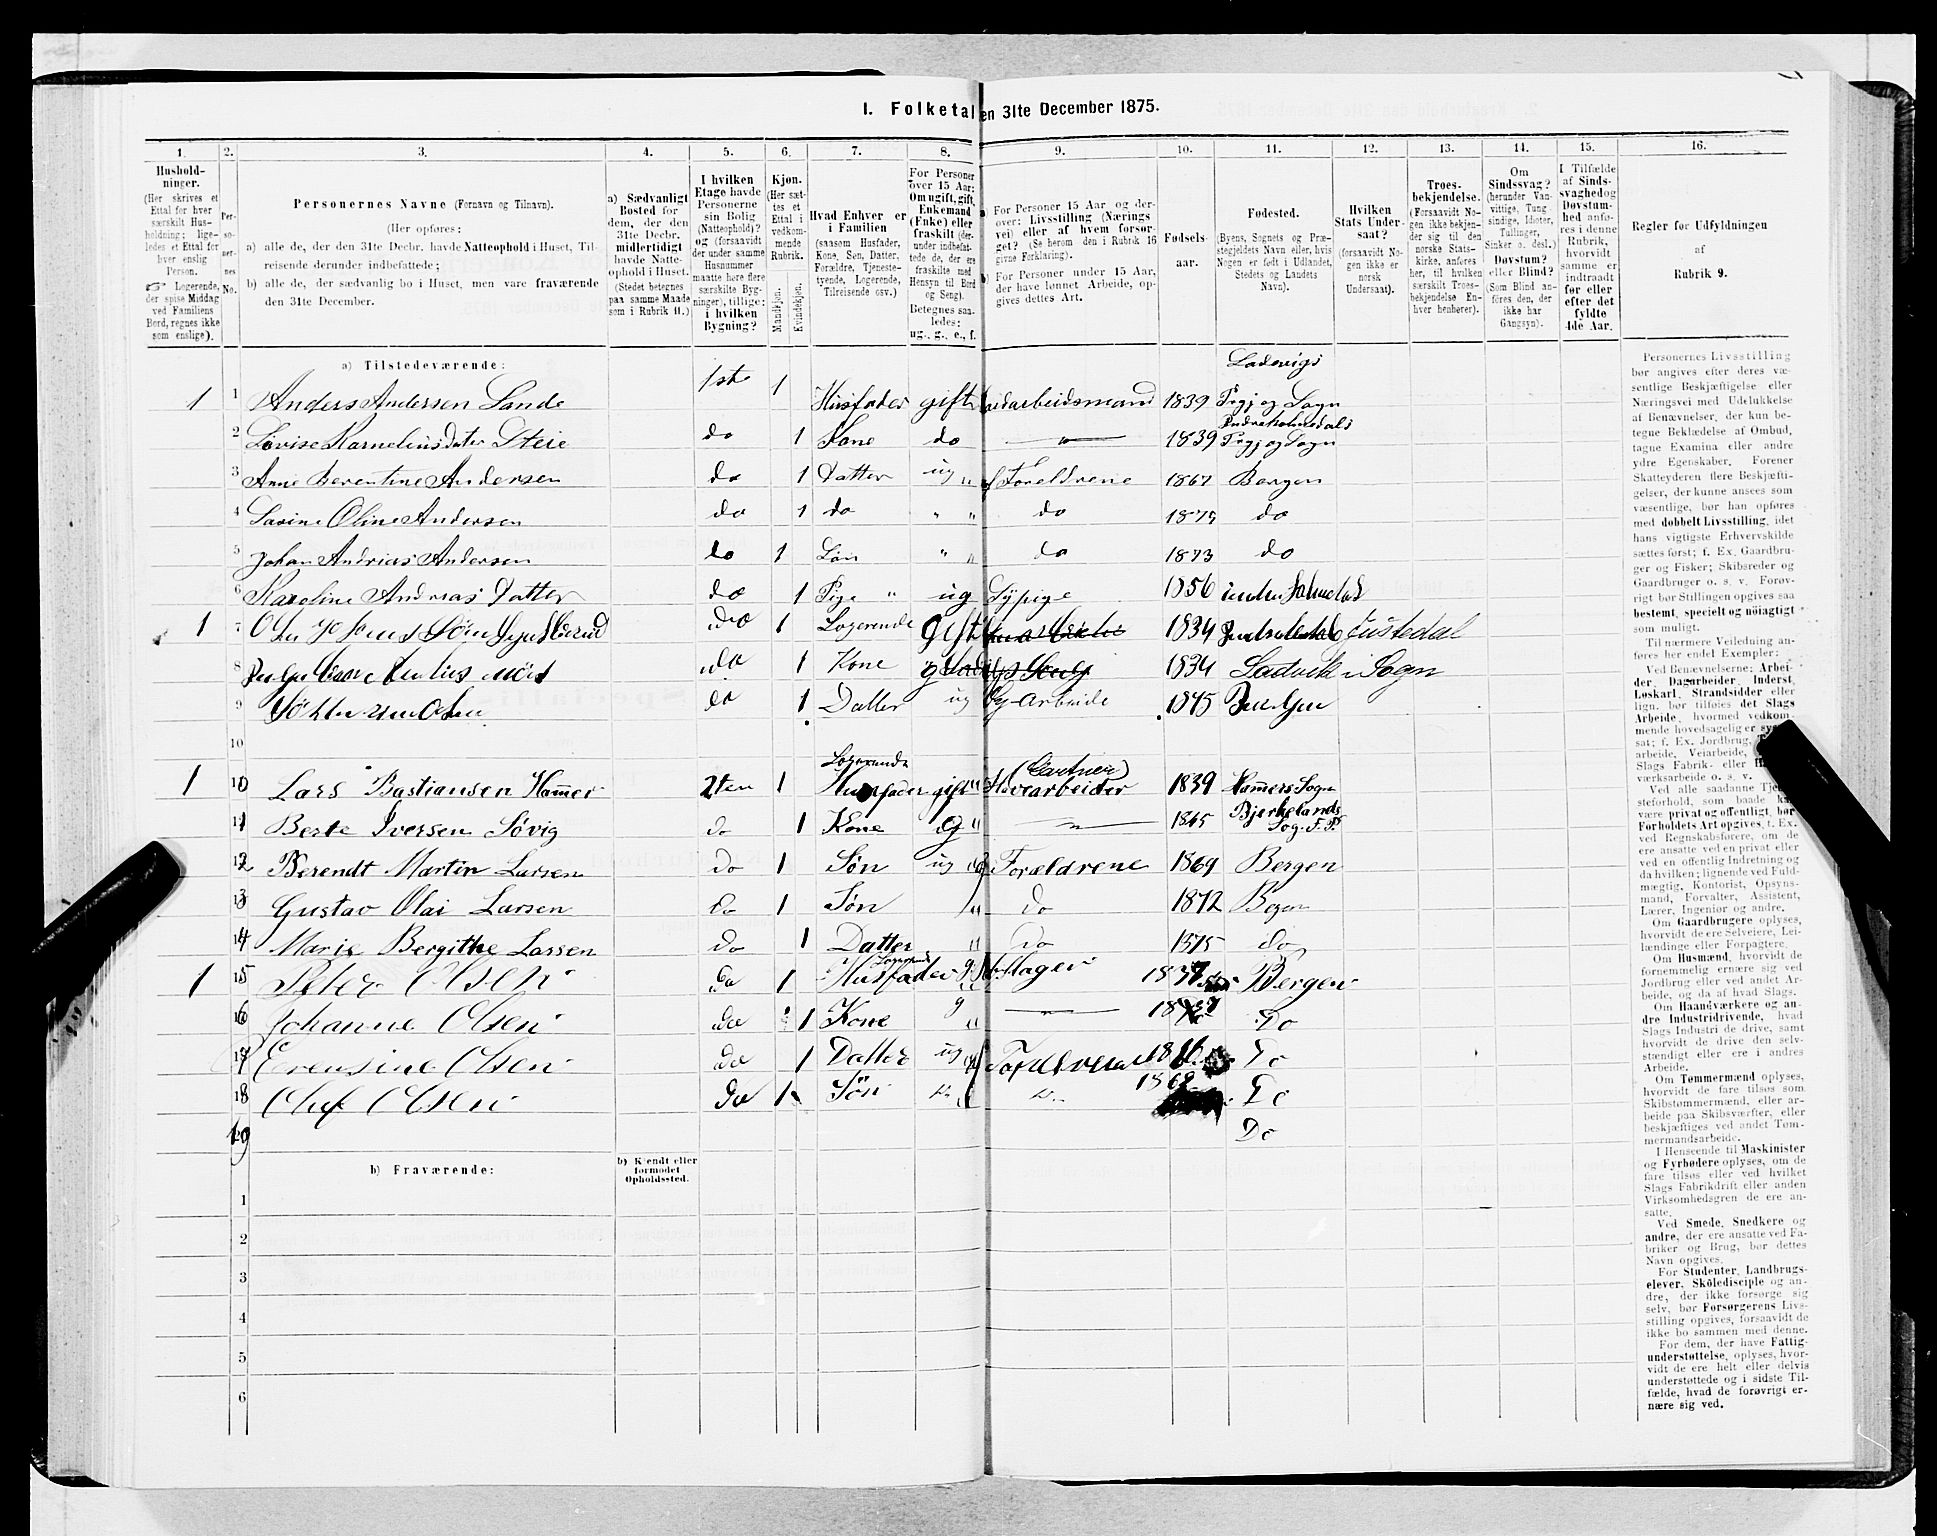 I. Folketal en 31te December 1875.
1. 2. 3. 4. 5. 6. 7. 8. 9. 10. 11. 12. 13. 14. 15. 16.
Hushold-
ninger.
(Her skrives et
Ettal for hver
særskilt Hus-
holdning; lige-
ledes et Ettal for
hver enslig
Person.
☞ Logerende,
der spise Middag
ved Familiens
Bord, regnes ikke
som enslige).
Per-
so-
ner-
nes
No.
Personernes Navne (Fornavn og Tilnavn).
(Her opføres:
a) alle de, der den 31te Decbr. havde Natteophold i Huset, Til-
reisende derunder indbefattede;
b) alle de, der sædvanlig bo i Huset, men vare fraværende
den 31te December.
a) Sædvanligt
Bosted for
dem, der den
31te Decbr.
midlertidigt
havde Natte-
ophold i Huset.
(Stedet betegnes
paa samme Maade
som i Rubrik 11.)
I hvilken
Etage havde
Personerne
sin Bolig
(Natteophold)?
og (forsaavidt
der under samme
Husnummer
maatte høre flere
særskilte Byg-
ninger), tillige:
i hvilken
Bygning?
Kjøn.
(Her sæt-
tes et
Ettal i
vedkom-
mende
Rubrik.
Mandkjøn.
Kvindekjøn.
Hvad Enhver er
i Familien
(saasom Husfader,
Kone, Søn, Datter,
Forældre, Tjeneste-
tyende, Logerende,
Tilreisende osv.)
For Personer
over 15 Aar:
Om ugift, gift,
Enkemand
(Enke) eller
fraskilt (der-
under indbefat-
tede de, der ere
fraskilte med
Hensyn til Bord
og Seng).
Betegnes saa-
ledes:
ug., g., e., f.
For Personer 15 Aar og der-
over: Livsstilling (Nærings
vei) eller af hvem forsør-
get? (Se herom den i Rubrik 16
givne Forklaring).
For Personer under 15 Aar,
der have lønnet Arbeide, op-
gives dettes Art.
Fødsels-
aar.
Fødested.
(Byens, Sognets og Præ-
stegjeldets Navn eller, hvis
Nogen er født i Udlandet,
Stedets og Landets
Navn).
Hvilken
Stats Under-
saat?
(forsaavidt No-
gen ikke er
norsk
Undersaat).
Troes-
bekjendelse.
(Forsaavidt No-
gen ikke bekjen-
der sig til den
norske Stats-
kirke, anføres
her, til hvilken
særskilt Troes-
bekjendelse En-
hver henhører).
Om
Sindssvag?
(herunder Van-
vittige, Tung-
sindige, Idioter,
Tullinger,
Sinker o. desl.)
Døvstum?
eller Blind?
(Som Blind an-
føres den, der
ikke har
Gangsyn).
I Tilfælde
af Sinds-
svaghed og
Døvstum-
hed anfø-
res i denne
Rubrik,
hvorvidt
samme er
indtraadt
før eller
efter det
fyldte
4de Aar.
Regler for Udfyldningen
af
Rubrik 9.
a) Tilstedeværende:
1 1 Anders Andersen Sande 1ste 1 Husfader gift arbeidsmand 1839 Ladevigs Pgj og Sogn
2 Lovise Kornelius dater Steie do 1 Kone do 1839 Pgj og Sogn
3 Ane Berentine Andersen do 1 Datter ug Foreldrene 1867 Bergen
4 Oline Andersen do 1 do " " do 1875 do
5 Johan Andrias Andersen do 1 Søn " do 1873 do
6 Karoline Andrias Datter do 1 Pige " ug Sypige 1856
1 7 do 1 Logerende Gift 1834 Justedal
8 do 1 Kone g 1834 Ladvik i Sogn
9 Olsen do 1 Datter ug Arbeide 1875
10
1 10 Lars Bastiansen Hammer 2ten 1 Logerende Husfader gift (Gartner) arbeider 1839 Hammers Sogn
11 Berte Iversen Søvig do 1 Kone g " 1845 Bjerkelands Sog. F. P.
12 Berendt Martin Larsen do 1 Søn ug Forældrene 1869 Bergen
13 Gustav Olai Larsen do 1 Søn " do 1872 Bergen
14 Marie Bergithe Larsen do 1 Datter " do 1875 do
1 15 Peter Olsen do 1 Logerende Husfader g 1837 Bergen
16 Johanne Olsen do 1 Kone g Do
17 Olsen do 1 Datter ug Do
18 Oluf Olsen do 1 Søn 1869 Do
19 Do
b) Fraværende:
b) Kjendt eller
formodet
Opholdssted.
1
2
3
4
5
6
Personernes Livsstilling
bør angives efter deres væ-
sentlige Beskjæftigelse eller
Næringsvei med Udelukkelse
af Benævnelser, der kun be-
tegne Beklædelse af Ombud,
tagne Examina eller andre
ydre Egenskaber. Forener
Skatteyderen flere Beskjæfti-
gelser, der kunne ansees som
væsentlige, bør han opføres
med dobbelt Livsstilling, idet
hans vigtigste Erhvervskilde
sættes først; f. Ex. Gaardbru-
ger og Fisker; Skibsreder og
Gaardbruger o. s. v. Forøv-
rigt bør Stillingen opgives saa
bestemt, specielt og nøiagtigt
som muligt.
Til nærmere Veiledning an-
føres her endel Exempler:
Ved Benævnelserne: Arbei-
der, Dagarbeider, Inderst,
Løskarl, Strandsidder eller
lign. bør tilføies det Slags
Arbeide, hvormed vedkom-
mende hovedsagelig er
sat; f. Ex. Jordbrug,
arbeide, Veiarbeide,
Slags Fabrik- eller
værksarbeide o. s. v.
Ved alle saadanne
steforhold, som baade
være privat og offentligt, bør
Forholdets Art opgives, t. Ex.
ved Regnskabsførere, om de
ere ansatte ved en privat eller
ved en offentlig Indretning og
da hvilken; lignende ved Fuld-
mægtig, Kontorist, Opsyns-
mand, Forvalter, Assistent,
Lærer, Ingeniør og andre.
Om Gaardbrugere oplyses,
hvorvidt de ere Selveiere, Lei-
lændinge eller Forpagtere.
Om Husmænd, hvorvidt de
fornemmelig ernære sig ved
Jordbrug eller ved andet Ar-
beide, og da af hvad Slags.
Om Haandværkere og an-
dre Industridrivende, hvad
Slags Industri de drive, samt
hvorvidt de drive den selv-
stændigt eller ere i andres
Arbeide.
Om Tømmermænd oplyses,
hvorvidt de fare tilsøs som
Skibstømmermænd, eller ar-
beide paa Skibsværfter, eller
beskjæftiges ved andet Tøm-
mermandsarbeide.
I Henseende til Maskinister
og Fyrbødere oplyses, om de
fare tilsøs eller ved hvilket
Slags Fabrikdrift eller anden
Virksomhedsgren de ere an-
satte.
Ved Smede, Snedkere og
andre, der ere ansatte ved Fa-
briker og Brug, bør dettes
Navn opgives.
For Studenter, Landbrugs-
elever, Skoledisciple og an-
dre, der ikke forsørge sig
selv, bør Forsørgerens Livs-
stilling opgives, forsaavidt de
ikke bo sammen med denne.
For dem, der have Fattig-
understøttelse, oplyses, hvor-
vidt de ere helt eller delvis
understøttede og i sidste Til-
fælde, hvad de forøvrigt er-
nære sig ved.